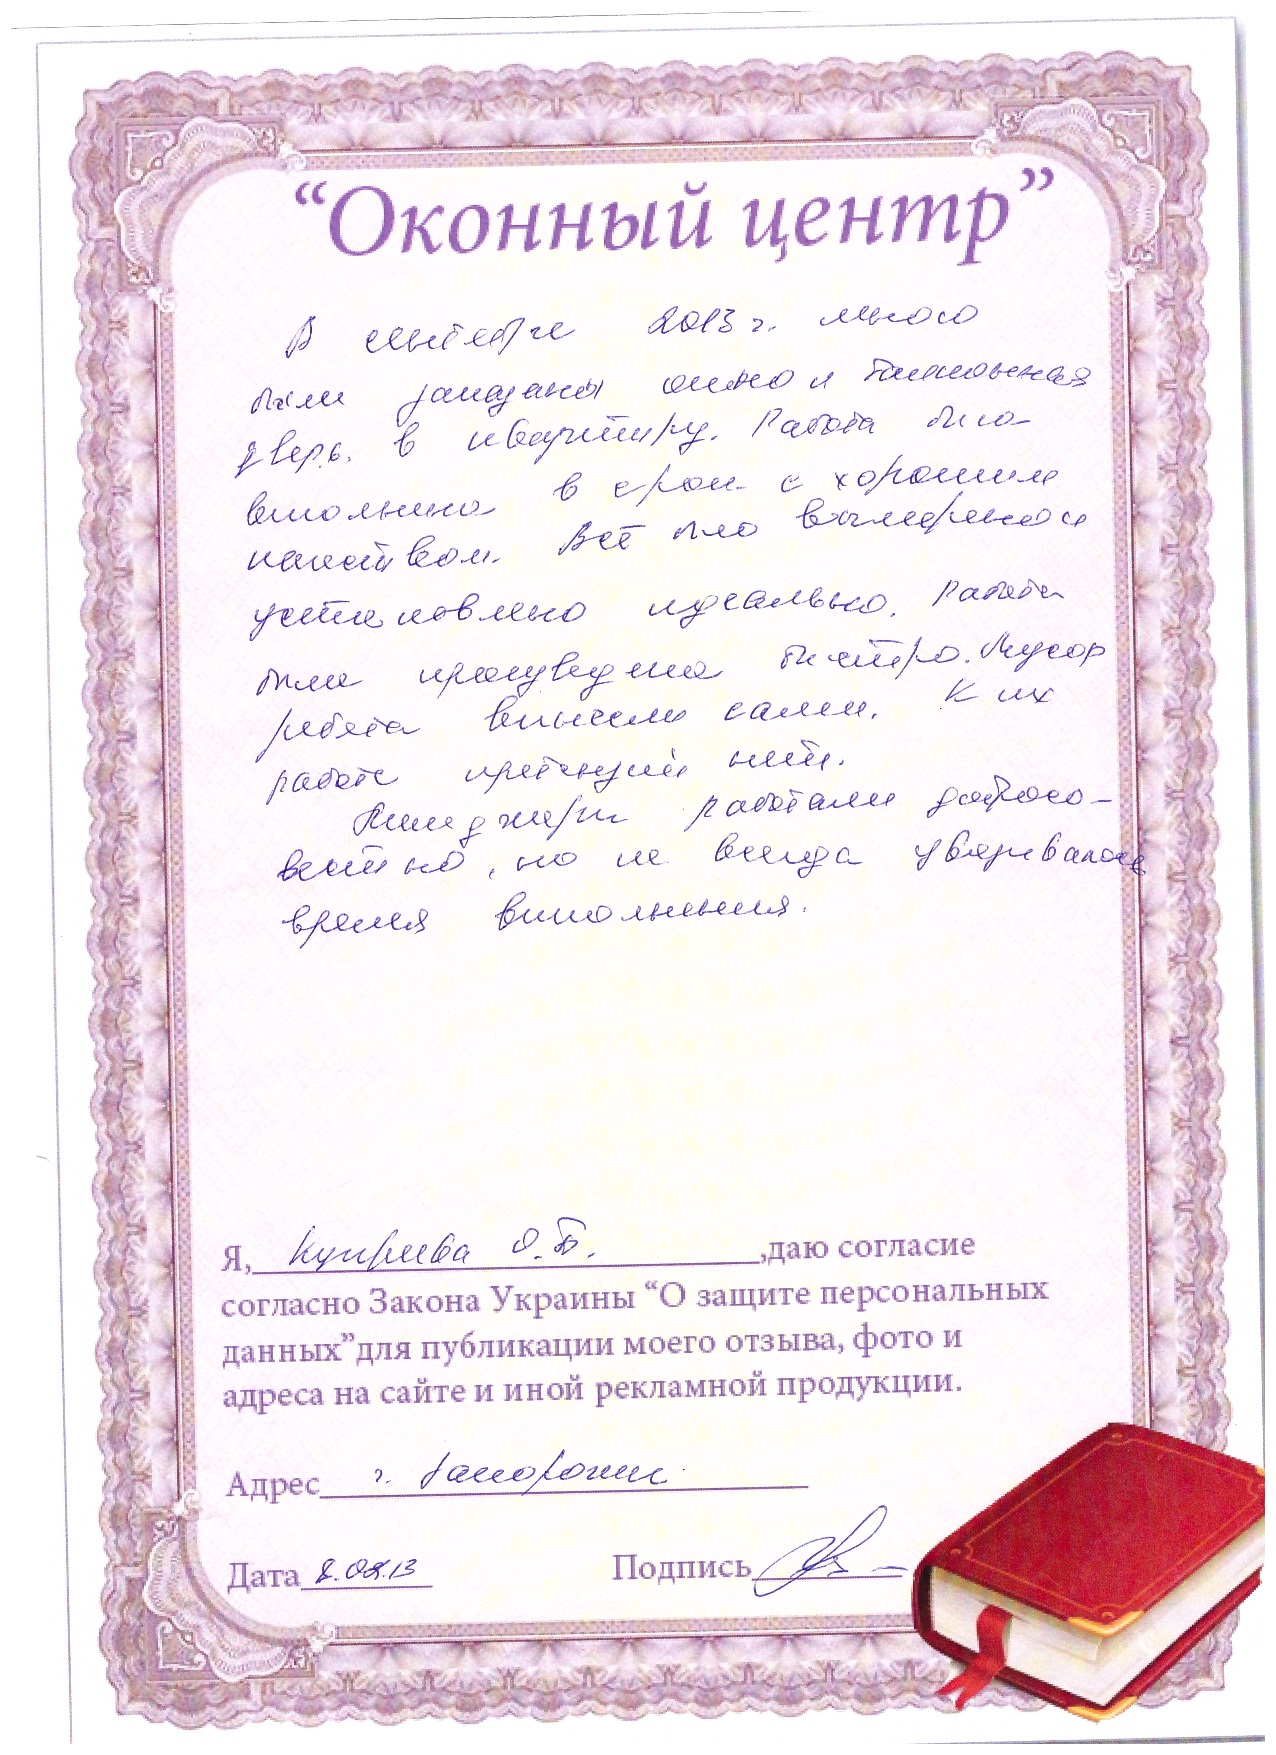 “Оконный центр”
В сентябре 2013 г. мною
были заказаны окно и балконная
дверь в квартиру. Работа была
выполнена в срок с хорошим
качеством. Всё было вымерено и
установлено идеально. Работы
были произведены быстро. Мусор
ребята вынесли сами. К их
работе претензий нет.
Менеджеры работали добросо-
вестно, но не всегда увязывалось
время выполнения.
Я, О.Б. ,даю согласие
согласно Закона Украины “О защите персональных
данных”для публикации моего отзыва, фото и
адреса на сайте и иной рекламной продукции.
Адрес г. Запорожье
Дата .13 Подпись